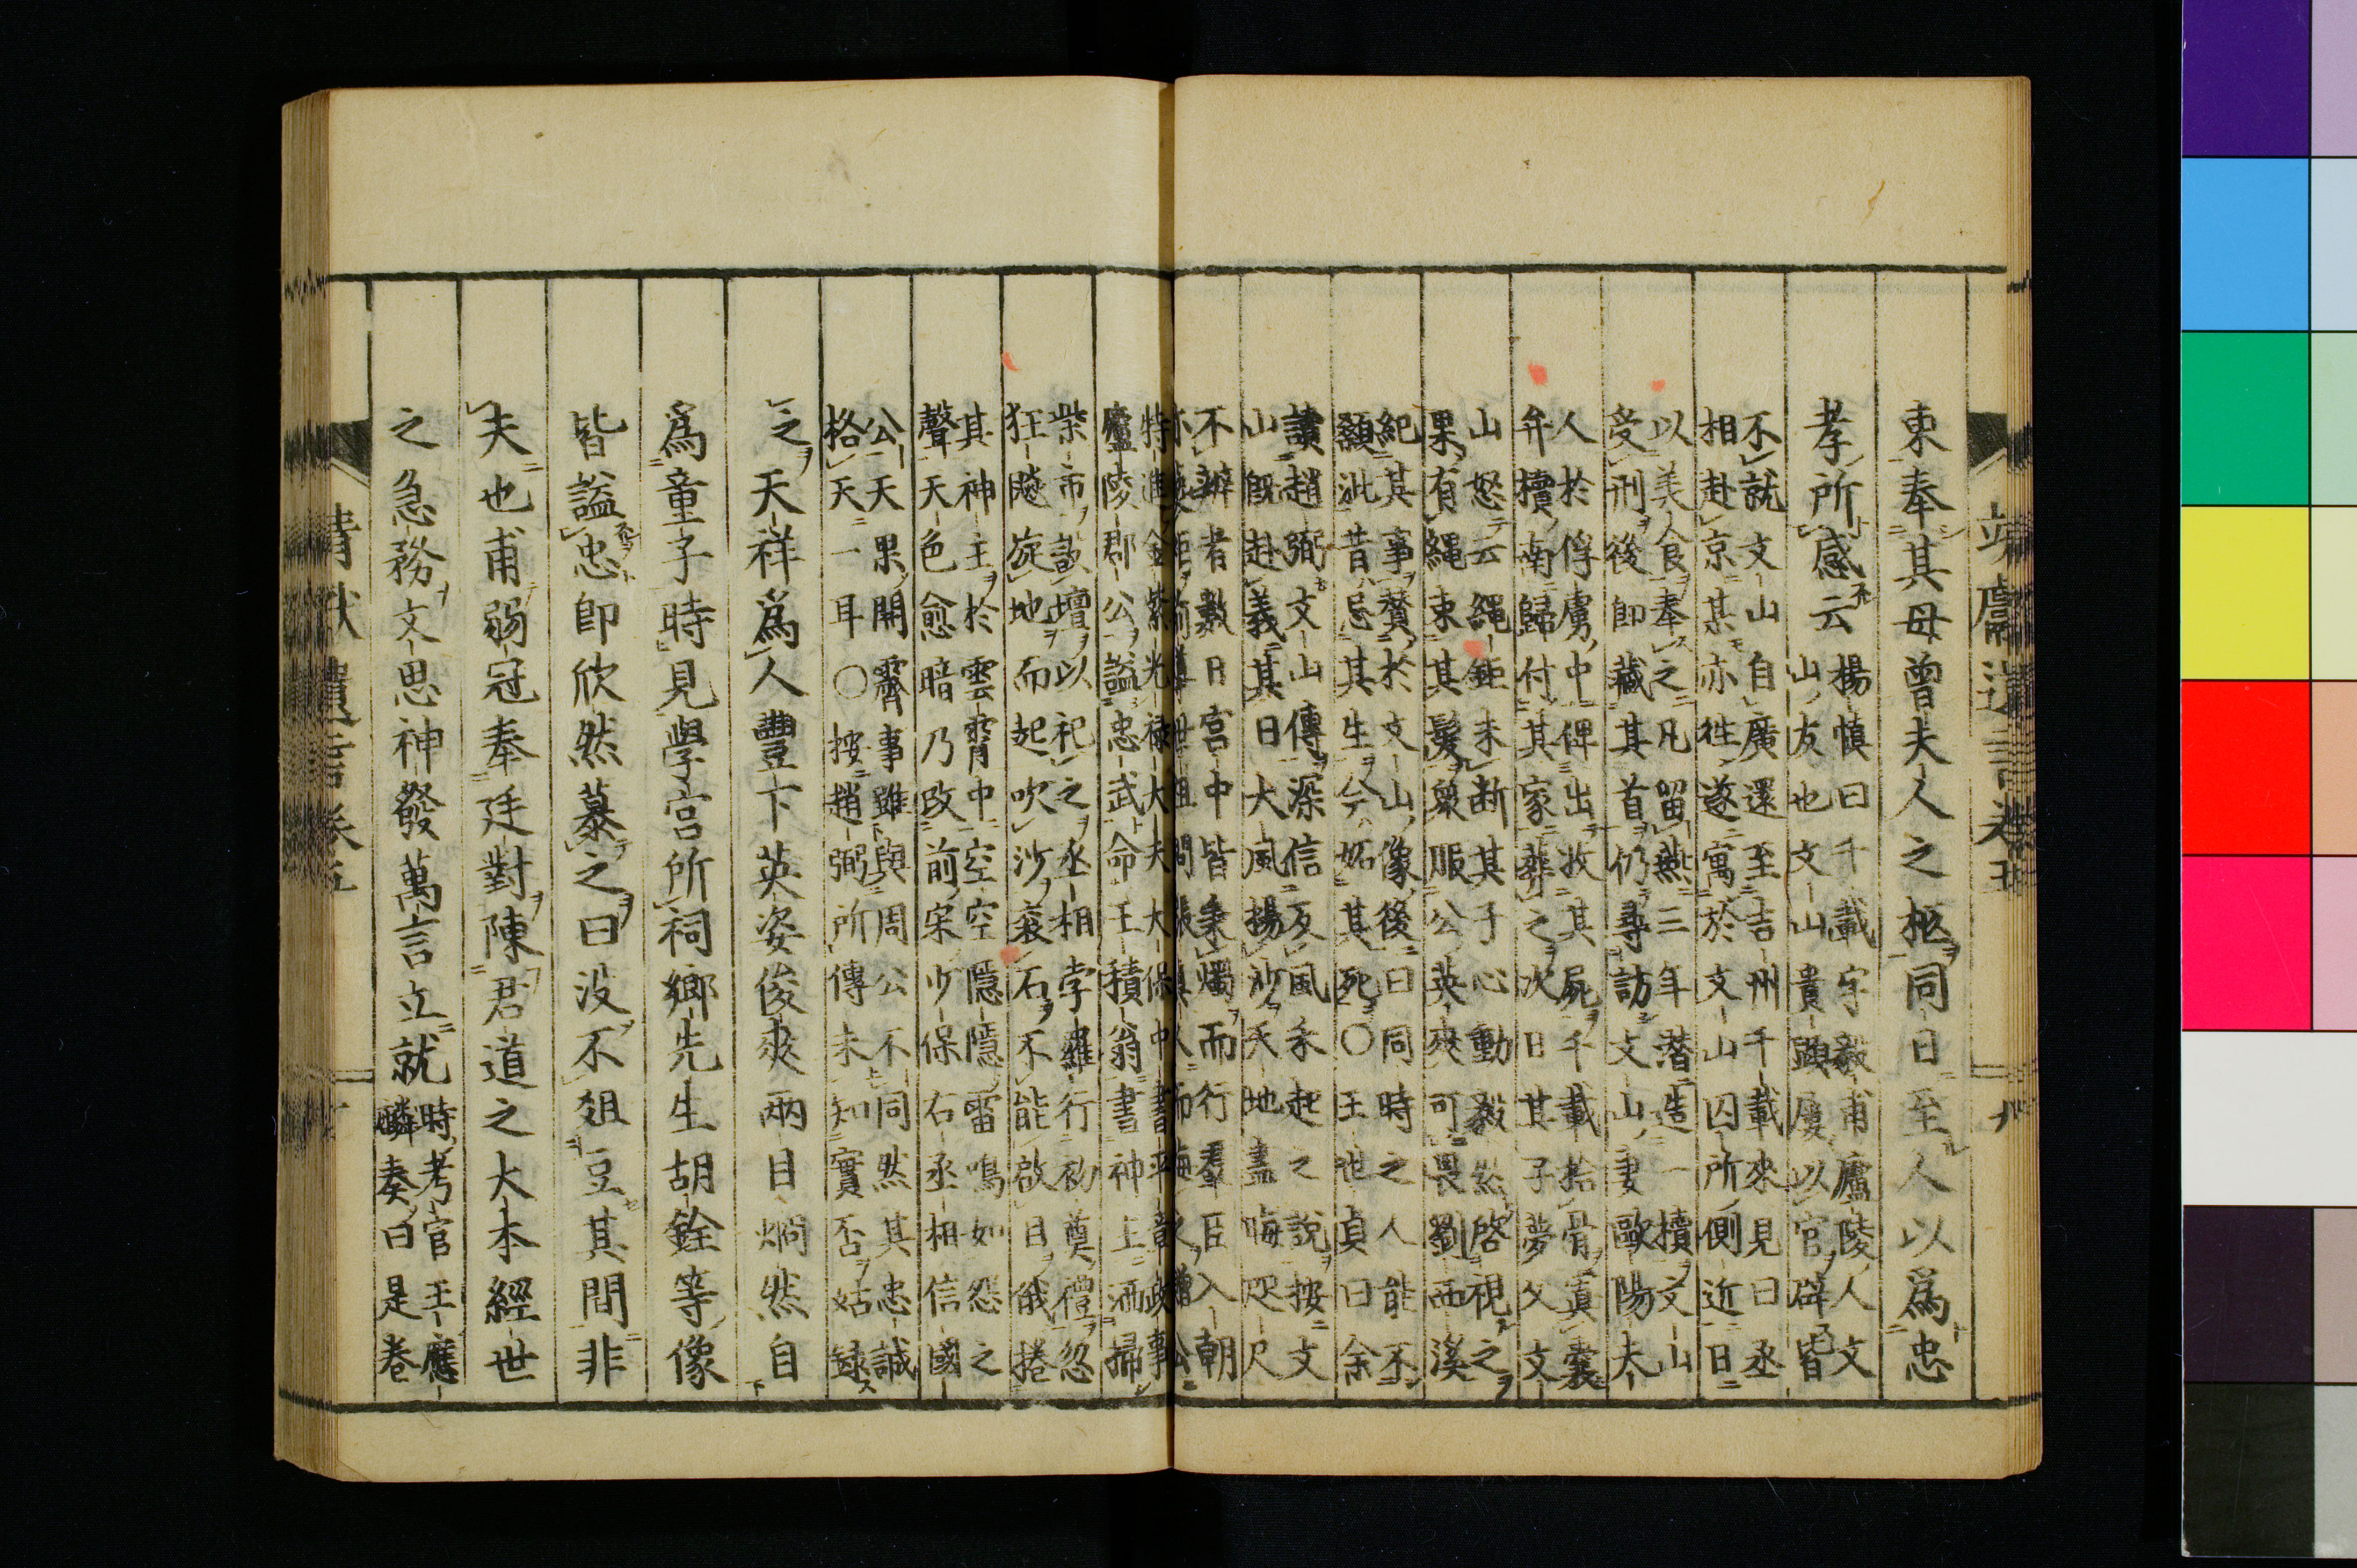 東奉其母曾夫人之柩同日至人以爲忠
孝所感云
楊慎曰千載字毅甫廬陵人文
山友也文山貴顯屡以官辟皆
不就文山自廣還至吉州千載來見曰丞
相赴京某亦徃遂寓於文山囚所側近日
以美食奉之凡留燕三年潜造一櫝文山
受刑後即藏其首仍尋訪文山妻歐陽夫
人於俘虜中俾出火其屍千載拾骨寘囊
弁櫝南歸付其家葬之次日其子夢父文
山怒云繩鉅未断其子心動毅然啓視之
果有繩束其髮衆服公英爽可畏劉西溪
紀其事賛於文山像後曰同時之人能不
顙泚昔忌其生今妬其死〇王世貞曰余
讀趙弼文山傳深信反風禾起之說按文
山既赴義其日大風揚沙天地盡晦咫尺
不辨者數日宮中皆秉燭而行羣臣入朝
特進金紫光禄大夫大保中書平章政事
廬陵郡公謚忠武命王積翁書神主洒掃
柴市設壇以祀之丞相孛羅行初奠禮忽
狂飈旋地而起吹沙滾石不能啟目俄捲
其神主於雲霄中空空隱隱雷鳴如怨之
聲天色愈暗乃改前宋少保右丞相信國
公天果開霽事雖與周公不同然其忠誠
格天一耳〇按趙弼所傳未知實否姑録
之天祥爲人豐下英姿俊爽兩目烱然自
爲童子時見學宮所祠鄉先生胡銓等像
皆謚忠即欣然慕之曰没不俎豆其間非
夫也甫弱冠奉廷對陳君道之大本經世
之急務文思神發萬言立就
時考官王應
麟奏曰是卷